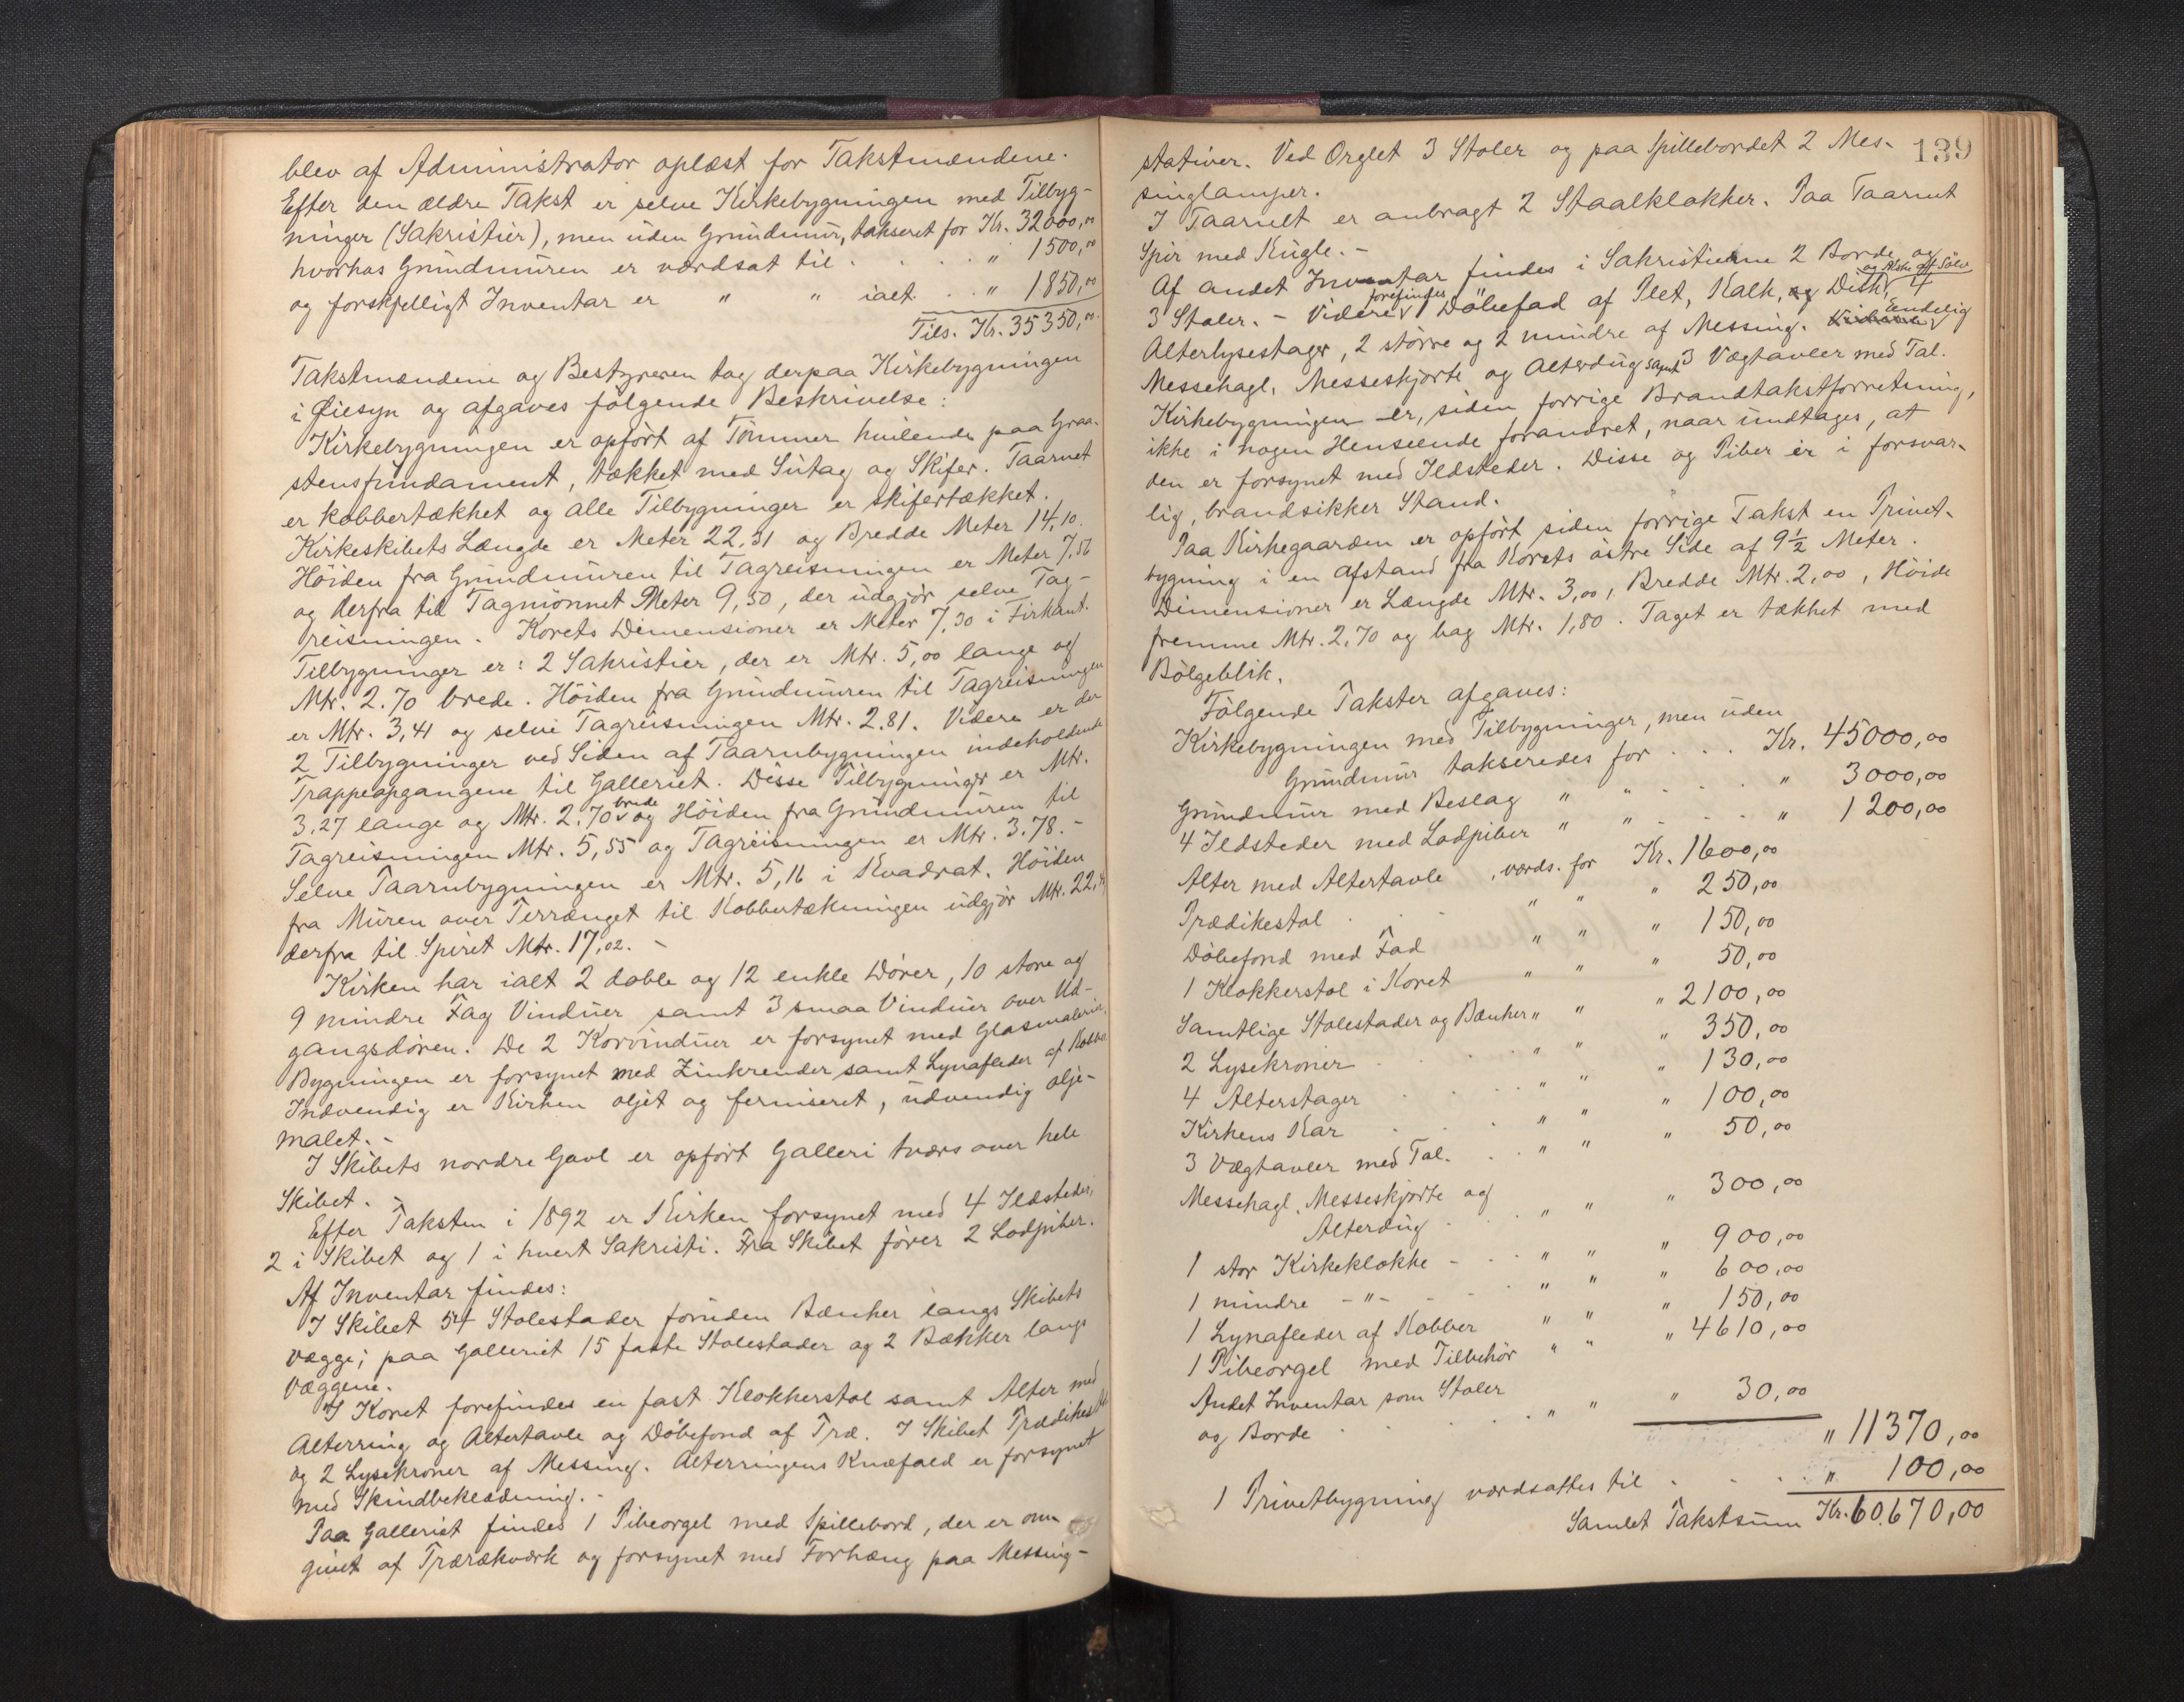 blev af Administrator oplæst for Takstmændene.
Efter den ældre Takst er selve Kirkebygningen med Tilbyg-
ninger (Sakristier), men uden Grundmur, takseret for Kr. 32000,00
hvorhos Grundmuren er værdsat til . . . . " 1500,00
og forskjelligt Inventar er " " ialt . . " 1850,00
Tils. Kr. 35350,00.
Takstmændene og Bestyreren tog derpaa Kirkebygningen
i Øiesyn og afgaves følgende Beskrivelse:
Kirkebygningen er opført af Tømmer hvilende paa Graa-
stensfundament, tækket med Sutag og Skifer. Taarnet
er kobbertækket og alle Tilbygninger er skifertækket.
Kirkeskibets Længde er Meter 22,31 og Bredde Meter 14,10.
Høiden fra Grundmuren til Tagreisningen er Meter 7,56
og derfra til Tagmønnet Meter 9,50, der udgjør selve Tag-
reisningen. Korets Dimensioner er Meter 7,30 i Firkant.
Tilbygninger er: 2 Sakristier, der er Mtr. 5,00 lange og
Mtr. 2.70 brede. Høiden fra Grundmuren til Tagreisningen
er Mtr. 3,41 og selve Tagreisningen Mtr. 2.81. Videre er der
2 Tilbygninger ved Siden af Taarnbygningen indeholdende
Trappeopgangene til Galleriet. Disse Tilbygninger er Mtr.
3,27 lange og Mtr. 2.70 brede og Høiden fra Grundmuren til
Tagreisningen Mtr. 5,55 og Tagreisningen er Mtr. 3.78.-
Selve Taarnbygningen er Mtr. 5,16 i Kvadrat. Høiden
fra Muren over Terrænget til Kobbertækningen udgjør Mtr. 22,
derfra til Spiret Mtr. 17,02. -
Kirken har ialt 2 doble og 12 enkle Dører, 10 store og
9 mindre Fag Vinduer samt 3 smaa Vinduer over Ud-
gangsdøren. De 2 Korvinduer er forsynet med Glasmalerier.
Bygningen er forsynet med Zinkrender samt Lynafleder af Kobber
Indvendig er Kirken oljet og ferniseret, udvendig olje-
malet. -
I Skibets nordre Gavl er opført Galleri tværs over hele
Skibet.
Efter Taksten i 1892 er Kirken forsynet med 4 Ildsteder,
2 i Skibet og 1 i hvert Sakristi. Fra Skibet fører 2 Lodpiber.
Af Inventar findes:
I Skibet 54 Stolestader foruden Bænker langs Skibets
Vægge; paa Galleriet 15 faste Stolestader og 2 Bækker langs
Væggene.
I Koret forefindes en fast Klokkerstol samt Alter med
Alterring og Altertavle og Døbefond af Træ. I Skibet Prædikestol
og 2 Lysekroner af Messing. Alterringens Knæfald er forsynet
med Skindbeklædning. -
Paa Galleriet findes 1 Pibeorgel med Spillebord, der er om-
givet af Trærækværk og forsynet med Forhæng paa Messing-
139
stativer. Ved Orglet 3 Stoler og paa Spillebordet 2 Mes-
singlamper.
I Taarnet er anbragt 2 Staalklokker. Paa Taarnet
Spir med Kugle. -
Af andet Inventar findes i Sakristierne 2 Borde og
3 Stoler. - Videre forefindes 1 Døbefad af Plet, Kalk, og Disk og Æske af Sølv, 4
Alterlysestager, 2 større og 2 mindre af Messing. Endelig
Messehagl, Messeskjorte og Alterdug samt 3 Vægtavler med Tal.
Kirkebygningen er, siden forrige Brandtakstforretning,
ikke i nogen Henseende forandret, naar undtages, at
den er forsynet med Ildsteder. Disse og Piber er i forsvar-
lig, brandsikker Stand.
Paa Kirkegaarden er opført siden forrige Takst en Privet-
bygning i en Afstand fra Korets østre Side af 9½ Meter.
Dimensioner er Længde Mtr. 3,00, Bredde Mtr. 2,00, Høide
fremme Mtr. 2,70 og bag Mtr. 1,80. Taget er tækket med
Bølgeblik.
Følgende Takster afgaves:
Kirkebygningen med Tilbygninger, men uden
Grundmur takseredes for . . . Kr. 45000,00
Grundmur med Beslag " " . . . . " 3000,00
4 Ildsteder med Lodpiber " " . . . . " 1200,00
Alter med Altertavle, værds. for Kr. 1600,00
Prædikestol . . " " " 250,00
Døbefond med Fad " " " 150,00
1 Klokkerstol i Koret " " " 50,00
Samtlige Stolestader og Bænker " " " 2100,00
2 Lysekroner . . . " " " 350,00
4 Alterstager . . . " " " 130,00
Kirkens Kar . . . " " " 100,00
3 Vægtavler med Tal. . . " " " 50,00
Messehagl, Messeskjorte og
Alterdug . . . " " " 300,00
1 stor Kirkeklokke - . . " " " 900,00
1 mindre - " - . . " " " 600,00
1 Lynafleder af Kobber " " " 150,00
1 Pibeorgel med Tilbehør " " " 4610,00
Andet Inventar som Stoler
og Borde . . . . " " " 30,00
" 11370,00
1 Privetbygning værdsattes til . . . . " 100,00
Samlet Takstsum Kr. 60.670,00